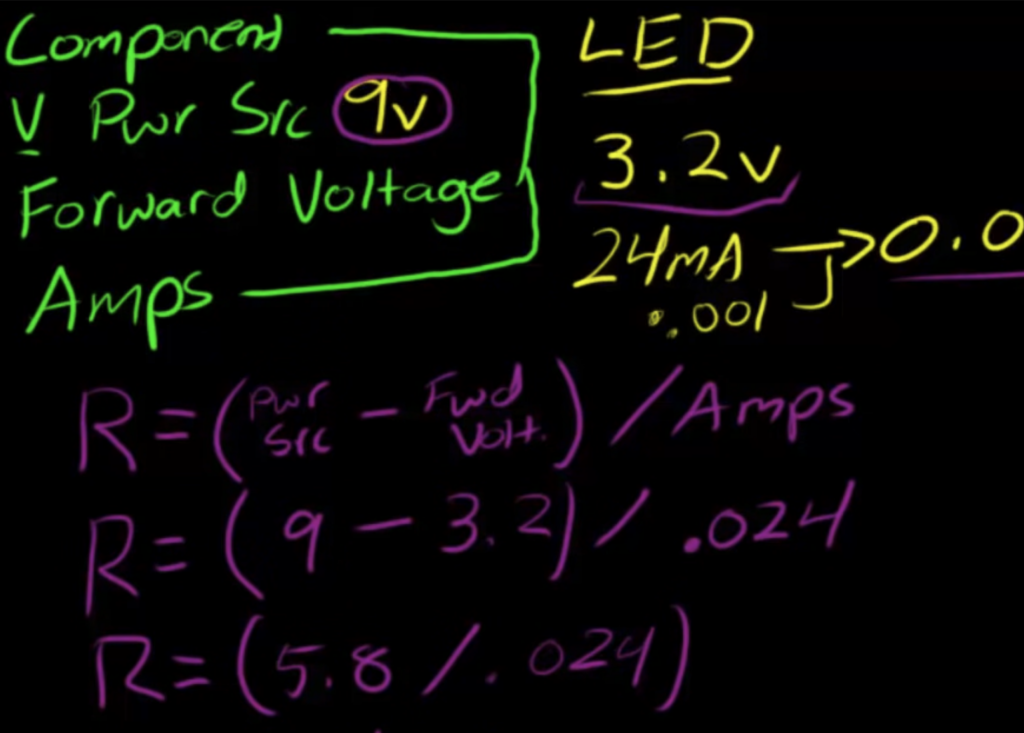 Component
V Pwr Src 9v
Forward Voltage
Amps
LED
3.2v
24mA -> 0.0
.001
R = (Pwr Src - Fwd Volt.) / Amps
R = (9 - 3.2) / .024
R = (5.8 / .024)